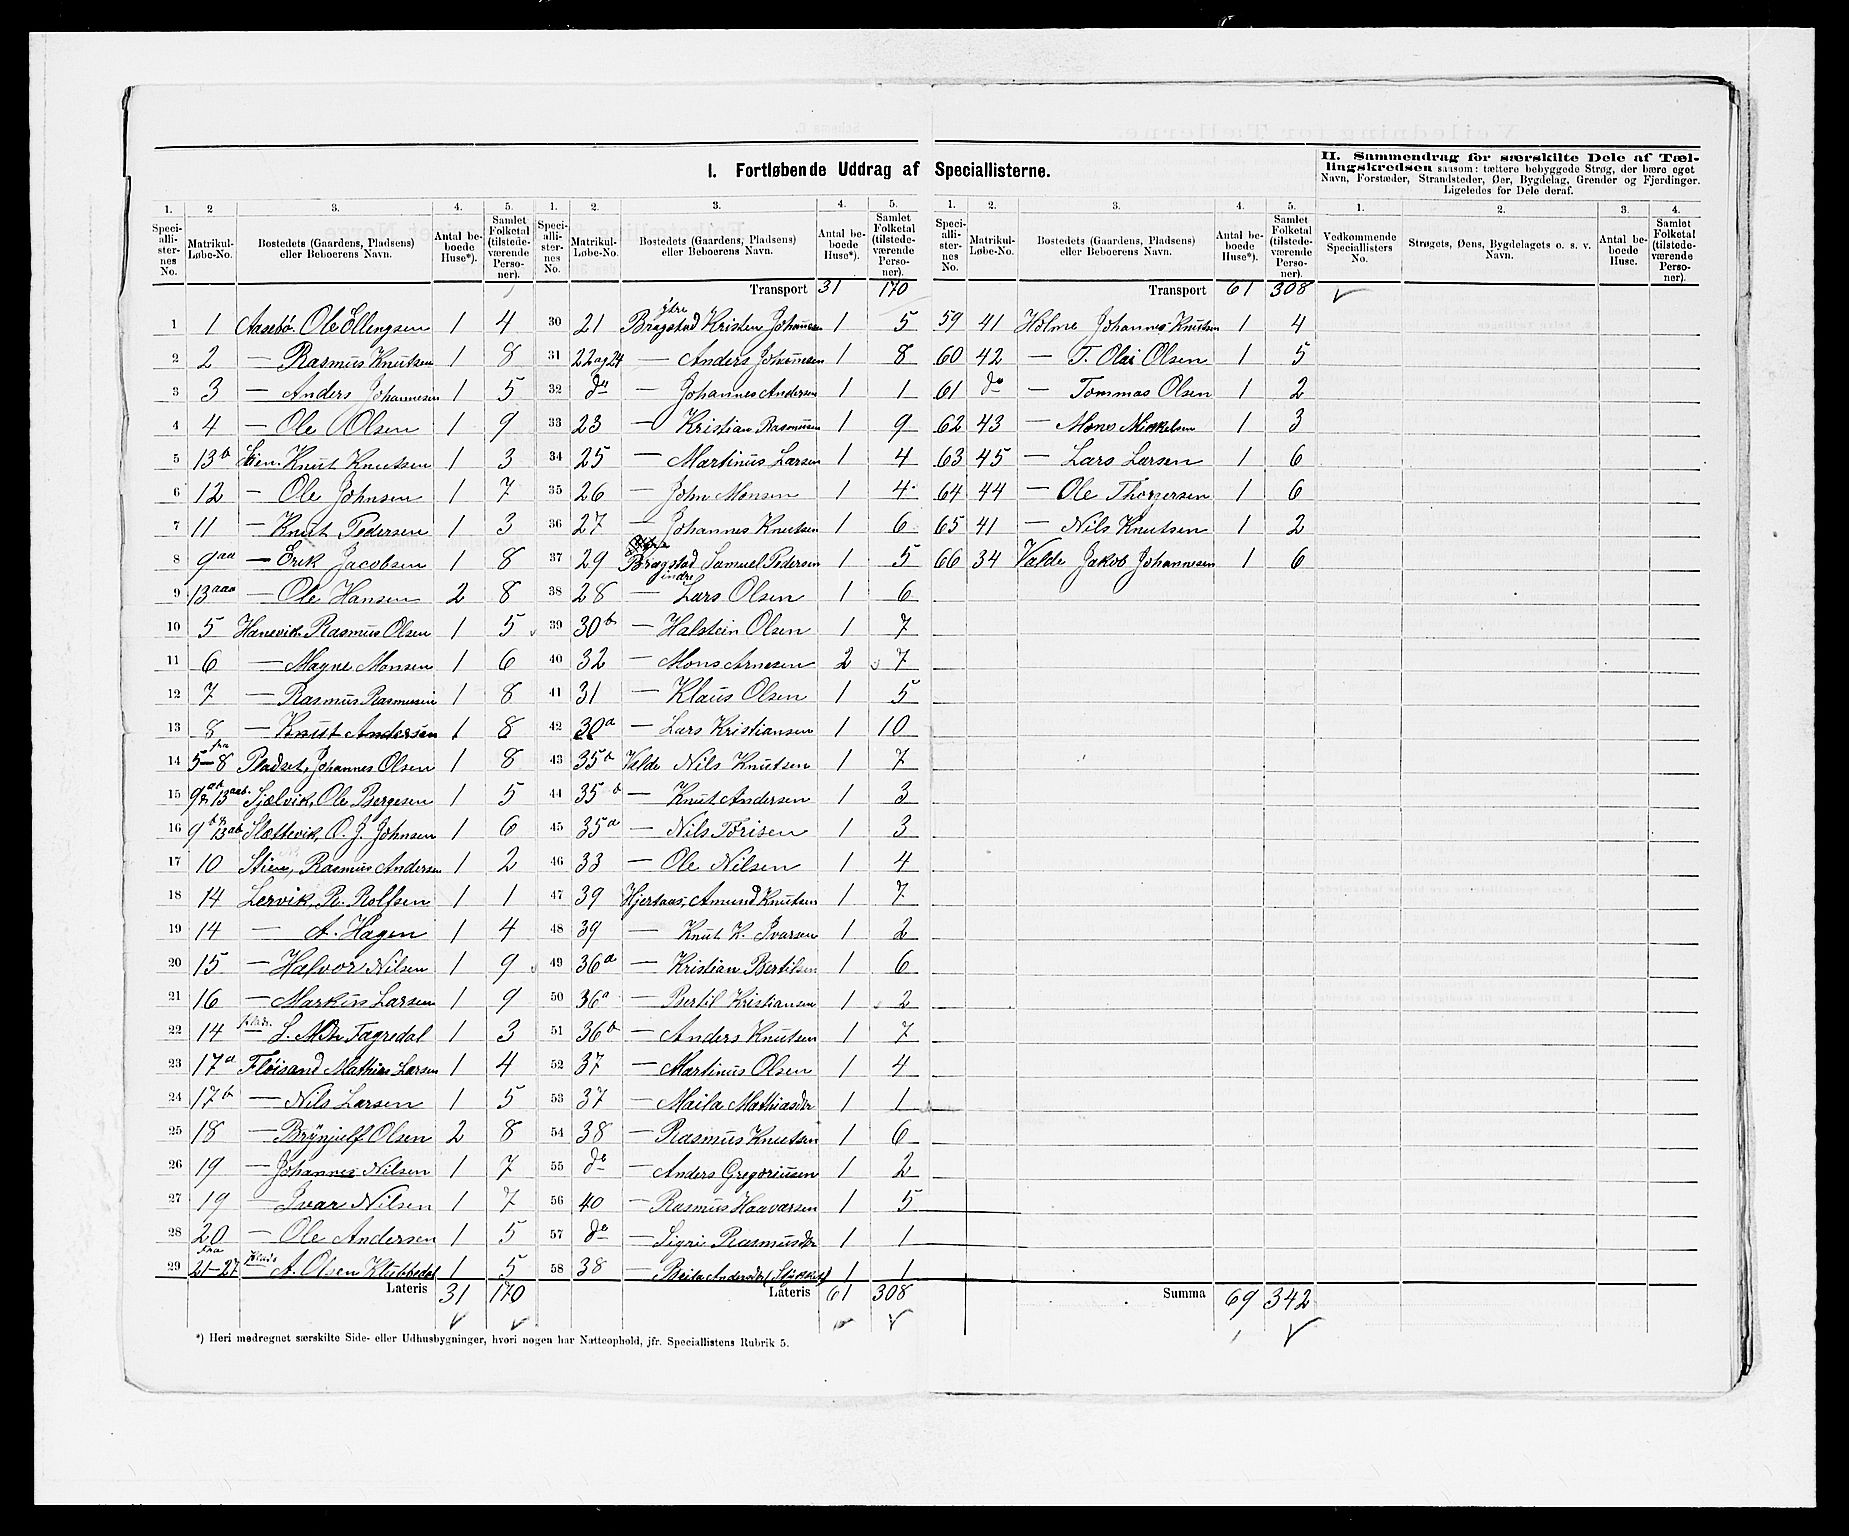 I. Fortløbende Uddrag af Speciallisterne.
1. 2 3. 4. 5.
Speciallisternes No. Matrikul-Løbe-No. Bostedets (Gaardens, Pladsens) eller Beboerens Navn. Antal beboede Huse*). Samlet Folketal (tilstedeværende Personer).
1 1 Aasebø. Ole Ellingsen 1 4
2 2 — Rasmus Knutsen 1 8
3 3 — Anders Johannesen 1 5
4 4 — Ole Olsen 1 9
5 13b Lien. Knut Knutsen 1 3
6 12 — Ole Johnsen 1 7
7 11 — Knut Pedersen 1 3
8 9aa — Erik Jacobsen 1 8
9 13aaa — Ole Hansen 2 8
10 5 Hanevik. Rasmus Olsen 1 5
11 6 — Magne Monsen 1 6
12 7 — Rasmus Rasmusen 1 8
13 8 — Knut Andersen 1 8
14 fra 5–8 Pladset, Johannes Olsen 1 8
15 9ab & 13aab. Sjælvik, Ole Bergesen 1 5
16 9b & 13ab Slettevik, O. J. Johnsen 1 6
17 10 Stien, Rasmus Andersen 1 2
18 14 Lervik, R. Rolfsen 1 1
19 14 — A. Hagen 1 4
20 15 — Halvor Nilsen 1 9
21 16 — Markus Larsen 1 9
22 14 — L. M. Fagredal 1 3
23 17a Fløisand Mathias Larsen 1 4
24 17b — Nils Larsen 1 5
25 18 — Brynjulf Olsen 2 8
26 19 — Johannes Nilsen 1 7
27 19 — Ivar Nilsen 1 7
28 20 — Ole Andersen 1 5
29 fra 21–27 — A. Olsen Klubbedal 1 5
Lateris 31 170
1. 2. 3. 4. 5.
Speciallisternes No. Matrikul-Løbe-No. Bostedets (Gaardens, Pladsens) eller Beboerens Navn. Antal beboede Huse*). Samlet Folketal (tilstedeværende Personer).
Transport 31 170
30 21 Bragstad ytre Kristen Johannesen 1 5
31 22 og 24 — Anders Johannesen 1 8
32 do — Johannes Andersen 1 1
33 23 — Kristian Rasmussen 1 9
34 25 — Martinus Larsen 1 4
35 26 — John Monsen 1 4
36 27 — Johannes Knutsen 1 6
37 29 Bragstad indre Samuel Pedersen 1 5
38 28 — Lars Olsen 1 6
39 30b — Halstein Olsen 1 7
40 32 — Mons Arnesen 2 7
41 31 — Klaus Olsen 1 5
42 30a — Lars Kristiansen 1 10
43 35b Valde Nils Knutsen 1 7
44 35b — Knut Andersen 1 3
45 35a — Nils Tørisen 1 3
46 33 — Ole Nilsen 1 4
47 39 Hjertaas, Amund Knutsen 1 7
48 39 — Knut K. Ivarsen 1 2
49 36a — Kristian Bertilsen 1 6
50 36a — Bertil Kristiansen 1 2
51 36b — Anders Knutsen 1 7
52 37 — Martinus Olsen 1 4
53 37 — Maila Mathiasdr 1 1
54 38 — Rasmus Knutsen 1 6
55 do — Anders Gregoriusen 1 2
56 40 — Rasmus Haavarsen 1 5
57 do — Sigri Rasmusdr 1 1
58 38 — Beita Andersdr 1 1
Lateris 61 308
1. 2. 3. 4. 5.
Speciallisternes No. Matrikul-Løbe-No. Bostedets (Gaardens, Pladsens) eller Beboerens Navn. Antal beboede Huse*). Samlet Folketal (tilstedeværende Personer).
Transport 61 308
59 41 Holme Johannes Knutsen 1 4
60 42 — T. Olai Olsen 1 5
61 do — Tommas Olsen 1 2
62 43 — Mons Mikkelsen 1 3
63 45 — Lars Larsen 1 6
64 44 — Ole Thorgersen 1 6
65 41 — Nils Knutsen 1 2
66 34 Valde Jakob Johannesen 1 6
Summa 69 342
II. Sammendrag for særskilte Dele af Tællingskredsen saasom: tættere bebyggede Strøg, der bære eget
Navn, Forstæder, Strandsteder, Øer, Bygdelag, Grender og Fjerdinger.
Ligeledes for Dele deraf.
1. 2. 3. 4.
Vedkommende Speciallisters No. Strøgets, Øens, Bygdelagets o. s. v. Navn. Antal beboede Huse. Samlet Folketal (tilstedeværende Personer).
*) Heri medregnet særskilte Side- eller Udhusbygninger, hvori nogen har Natteophold, jfr. Speciallistens Rubrik 5.